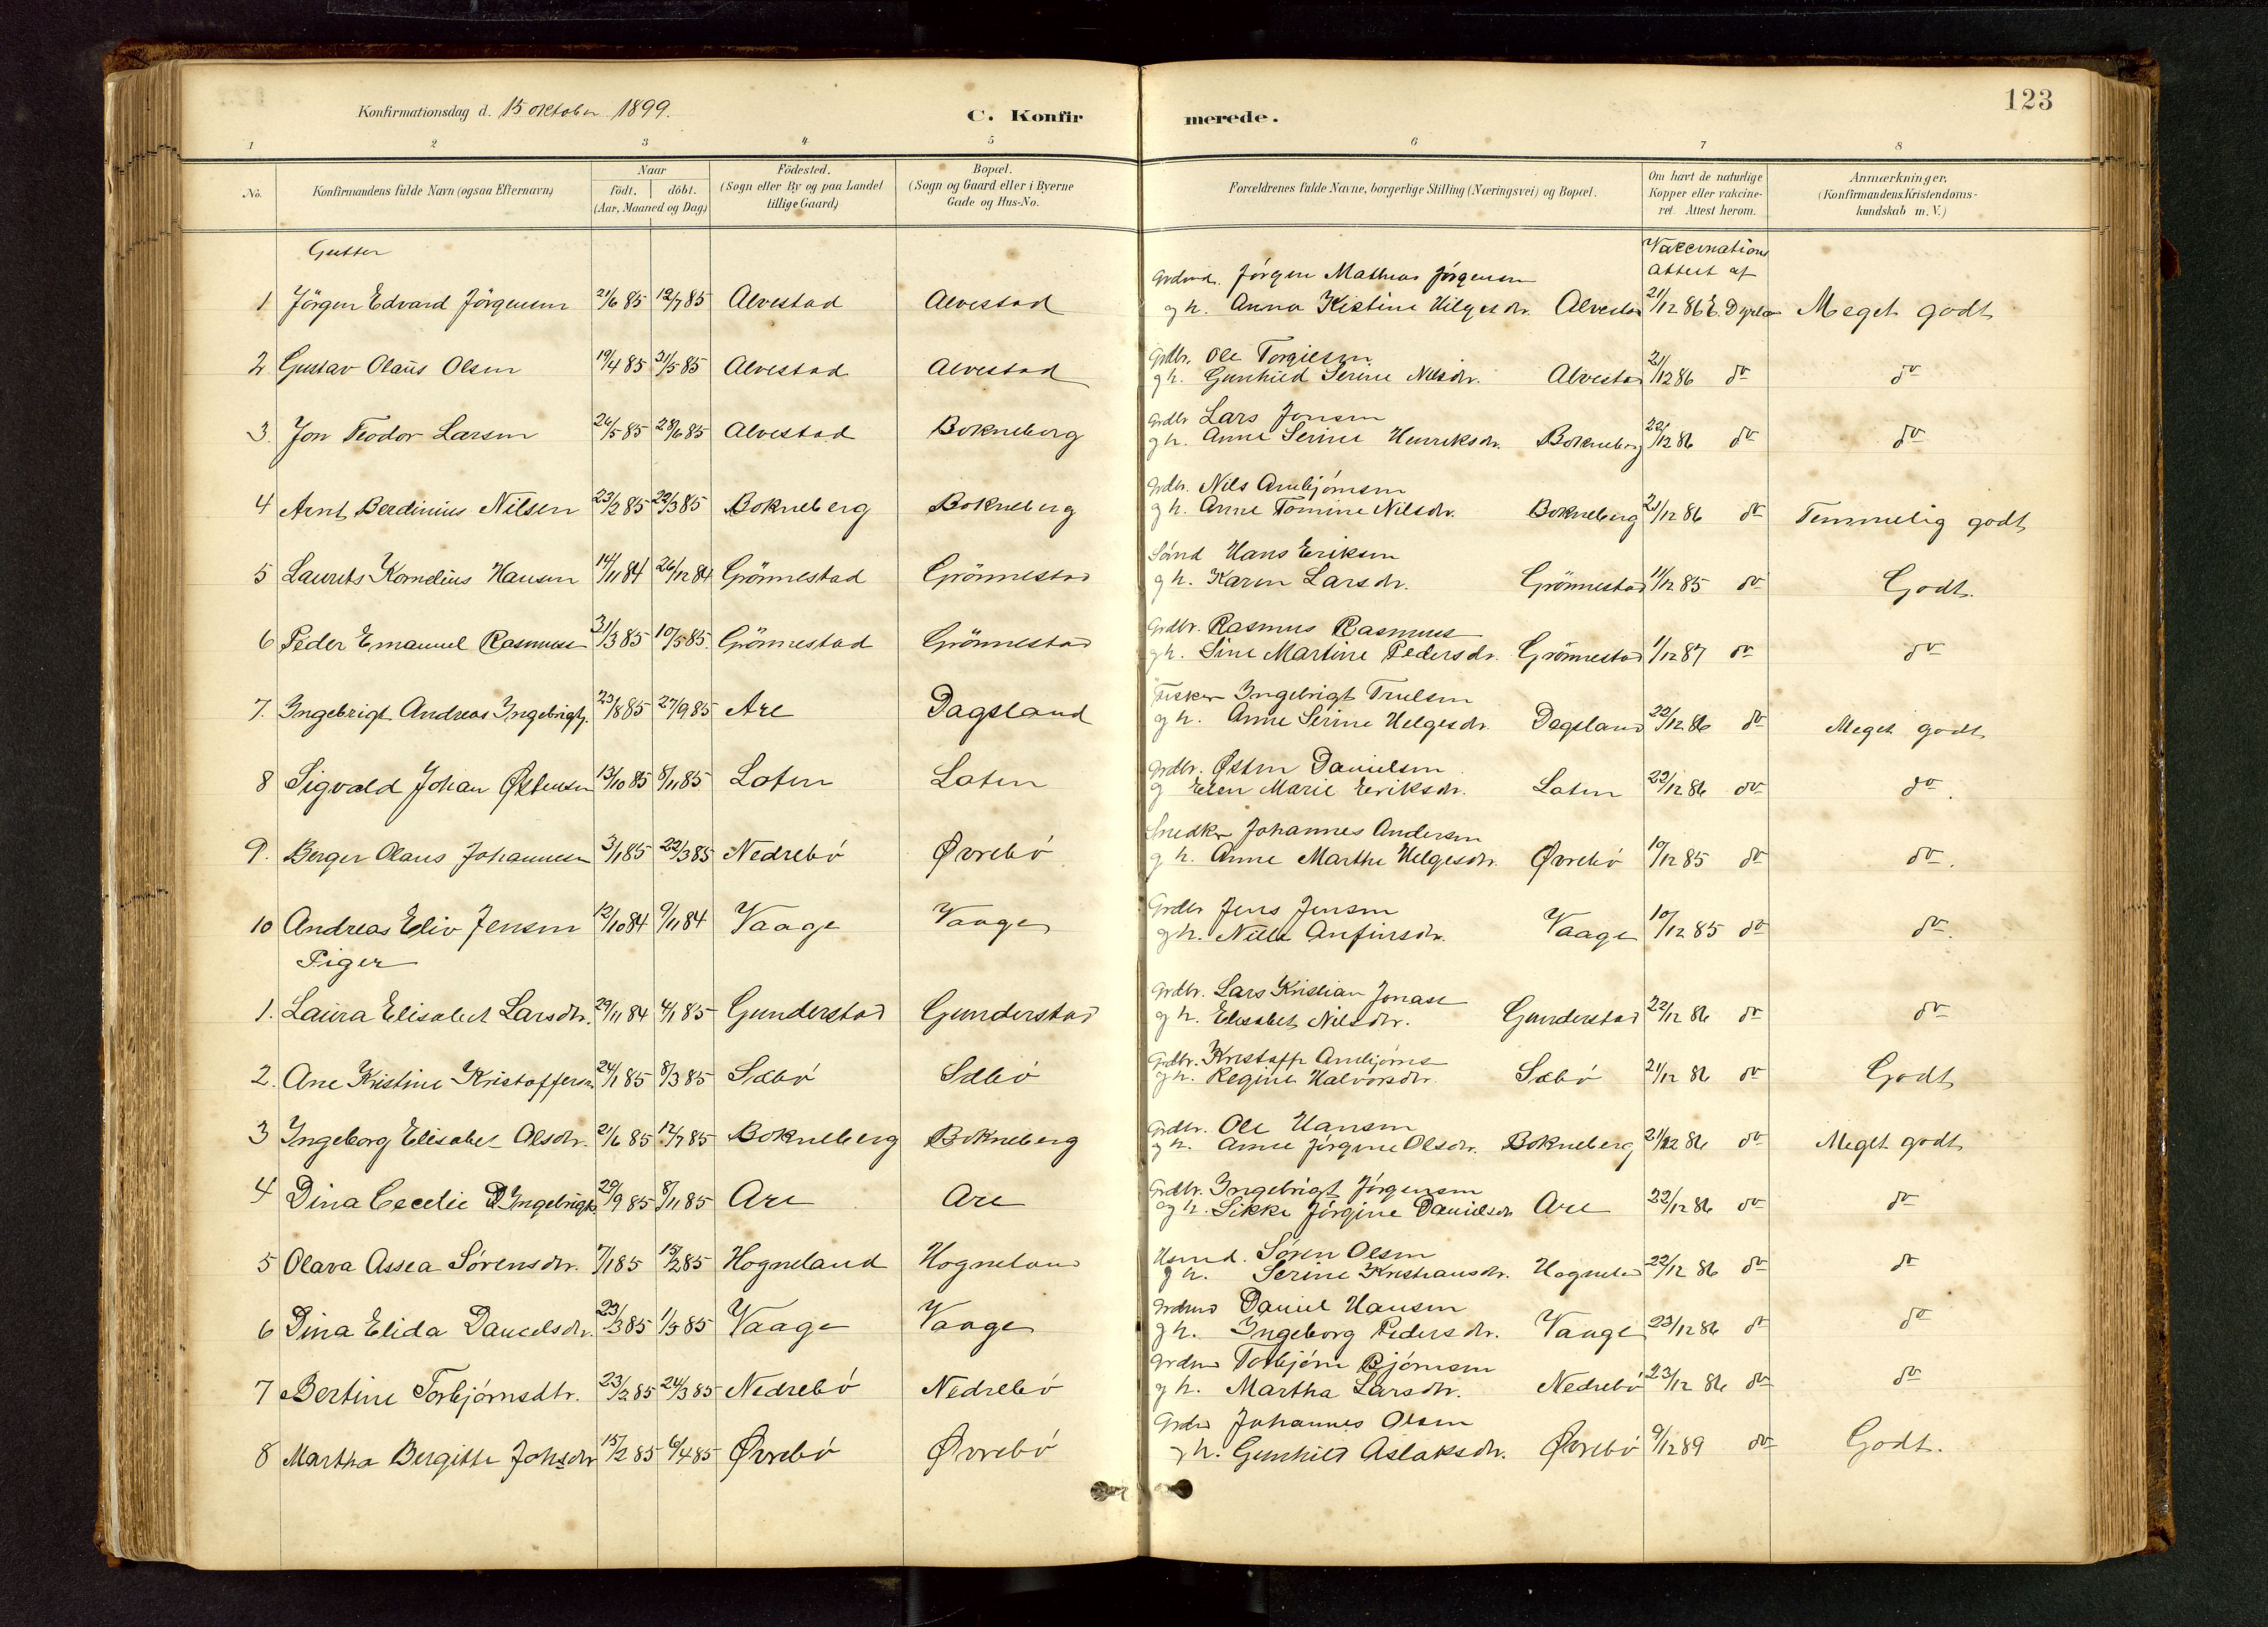 123
Konfirmationsdag d. 15 oktober 1899.
C. Konfirmerede.
1 2 3 4 5 6 7 8
No.
Konfirmandens fulde Navn (ogsaa Efternavn)
Naar
födt. döbt.
(Aar, Maaned og Dag)
Födested.
(Sogn eller By og paa Landet
tillige Gaard)
Bopæl.
(Sogn og Gaard eller i Byerne
Gade og Hus-No.
Forældrenes fulde Navne, borgerlige Stilling (Næringsvei) og Bopæl.
Om havt de naturlige
Kopper eller vakcine-
ret. Attest herom.
Anmærkninger.
(Konfirmandens Kristendoms-
kundskab m. V.)
Gutter
Vaccinations
attest af
Grdmd. Jörgen Mathias Jörgensen
1 Jörgen Edvard Jörgensen 21/6 85 12/7 85 Alvestad Alvestad g h. Anna Kistine Helgesdr. Alvestad 21/12 86 E. Dyrland Meget godt
Grdbr. Ole Torgilsen
2 Gustav Olaus Olsen 19/4 85 31/5 85 Alvestad Alvestad g h. Gunhild Serine Nilsdr. Alvestad 21/12 86 do do
Grdbr Lars Jonsen
3. Jon Teodor Larsen 26/5 85 28/6 85 Alvestad Bokneberg g h. Anne Serine Henriksdr. Bokneberg 22/12 86 do do
Grdbr. Nils Arnbjörnsen
4 Arnt Berdinius Nilsen 23/2 85 22/3 85 Bokneberg Bokneberg g h. Anne Tomine Nilsdr. Bokneberg 21/12 86 do Temmelig godt
Hans Eriksen
5 Laurits Kornelius Hansen 14/11 84 26/12 84 Grönnestad Grönnestad g h. Karen Larsdr. Grönnestad 11/12 85 do Godt.
Grdbr. Rasmus Rasmuss
6 Peder Emanuel Rasmuss 31/3 85 10/5 85. Grönnestad Grönnestad g h. Sine Martine Pedersdr. Grönnestad 1/12 87 do do
Fisker Ingebrigt Truelsen
7. Ingebrigt Andreas Ingebrigts. 23/8 85 27/9 85 Are Dagsland g h. Anne Serine Helgesdr. Dagsland 22/12 86 do Meget godt
Grdbr. Østen Danielsen
8 Sigvald Johan Østensen 13/10 85 8/11 85 Loten Loten g Elen Marie Eeriksdr. Loten 22/12 86 do do.
Snedker Johannes Andersen
9. Berger Olaus Johannesen 3/1 85 22/3 85 Nedrebö Øvrebö g h. Anne Marthe Helgesdr. Øvrebö 10/12 85 do do.
Grdbr Jens Jensen
10 Andreas Eliv Jensen 12/10 84 9/11 84 Vaage Vaage g h. Nille Anfinsdr. Vaage 10/12 85 do do.
Piger
Grdbr. Lars Kristian Jonass
1. Laura Elisabet Larsdtr. 29/11 84 4/1 85 Gunderstad Gunderstad g h. Elisabet Nilsdtr. Gunderstad 22/12 86 do do
Grdbr. Kristoffr Arnbjörns
2. Ane Kristine Kristoffersen 24/1 85 8/3 85 Sæbö Sæbö g h. Regine Halvorsdtr. Sæbö 21/12 86 do Godt
Grdbr. Ole Hansen
3 Ingeborg Elisabet Olsdtr. 21/6 85 12/7 85 Bokneberg Bokneberg g h. Anne Jörgine Olsdtr. Bokneberg 21/12 86 do Meget godt
Grdbr. Ingebrigt Jörgensen
4 Dina Cecelie Ingebrigts. 29/9 85 8/11 85 Are Are og h. Sikke Jörgine Danielsdr Are 22/12 86 do do
Husmd. Sören Olsen
5 Olava Assea Sörensdtr. 7/1 85 15/2 85 Hogneland Hogneland g h. Serine Kristiansdr. Hogneland 22/12 86 do do
Grdmd Daniel Hansen
6 Dina Elida Danielsdtr. 23/3 85 1/5 85 Vaage Vaage g h. Ingeborg Pedersdtr. Vaage 23/12 86 do do
Grdmd Torbjörn Bjórnsen
7 Bertine Torbjörnsdtr. 23/2 85 24/3 85 Nedrebö Nedrebö g h. Martha Larsdtr. Nedrebö 23/12 86 do do
Grdmd Johannes Olsen
8 Martha Bergitte Johsdtr 15/2 85 6/4 85 Øvrebö Øvrebö g h. Gunhild Aslaksdtr. Øvrebö 9/12 89 do Godt.